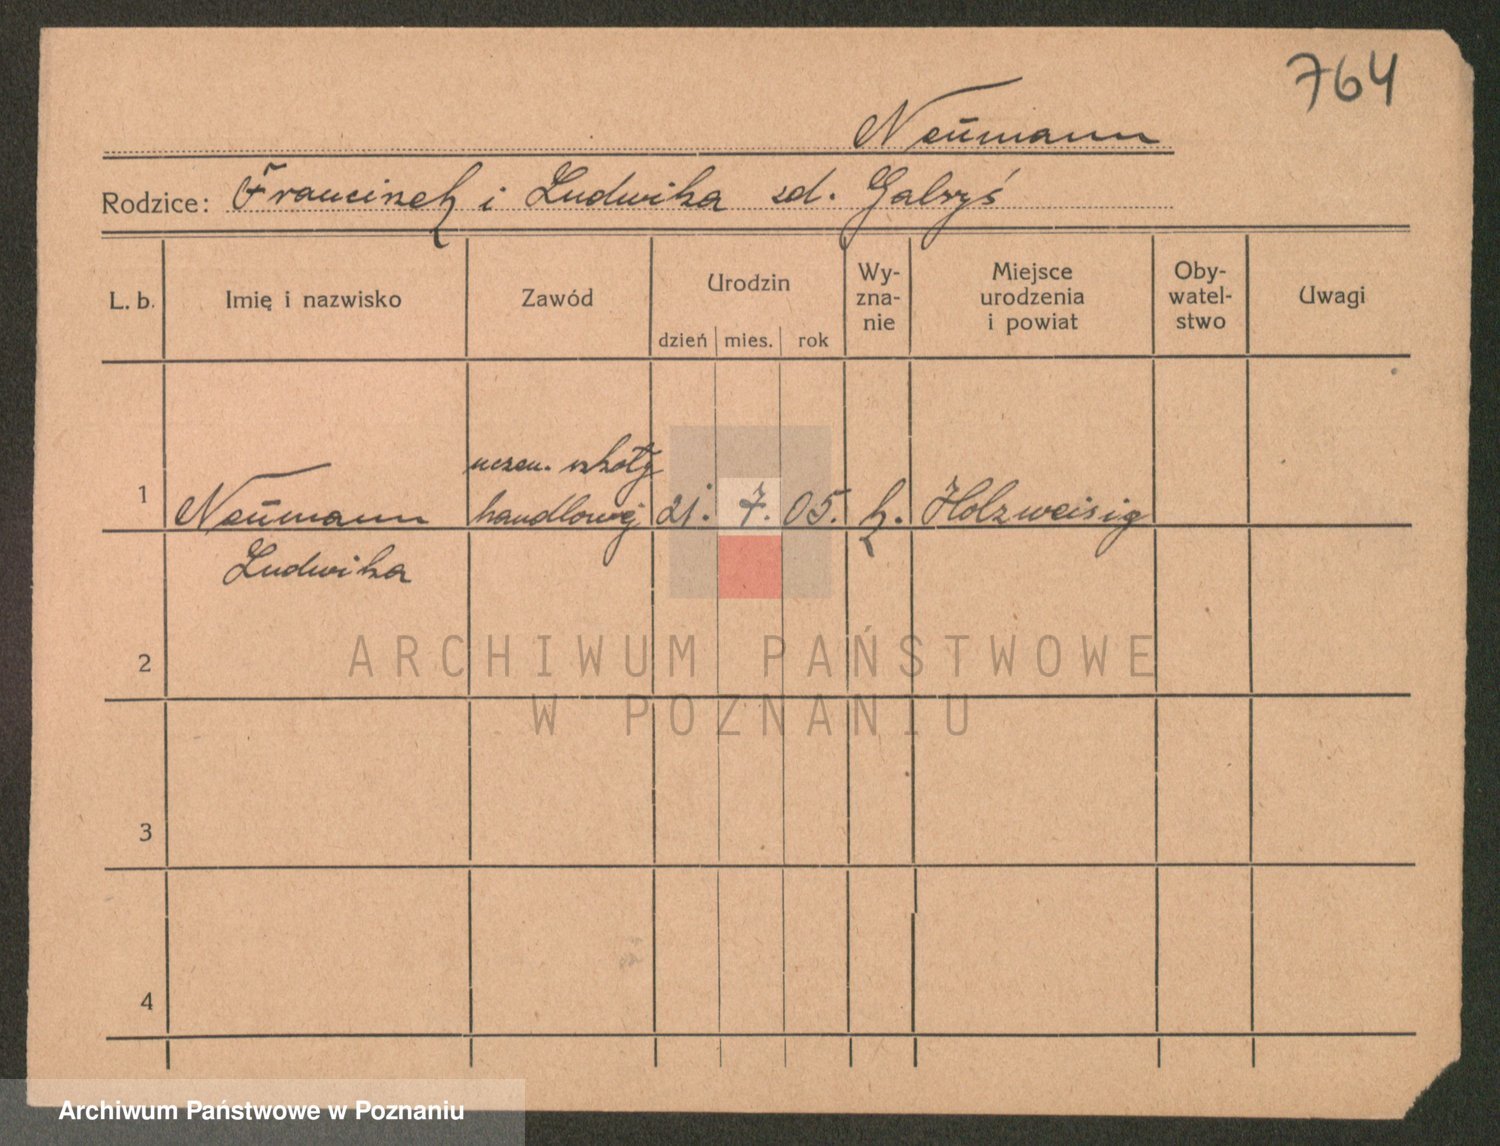 764
Neumann
Rodzice: Franciszek i Ludwika zd. Gabryś
L. b. Imię i nazwisko Zawód Urodzin Wy-zna-nie Miejsce urodzenia i powiat Oby-watel-stwo Uwagi
dzień mies. rok
uczen. szkoły
1 Neumann handlowej 21. 7. 05. k. Holzweisig
Ludwika
2
ARCHIWUM PAŃSTWOWE
W POZNANIU
3
4
Archiwum Państwowe w Poznaniu